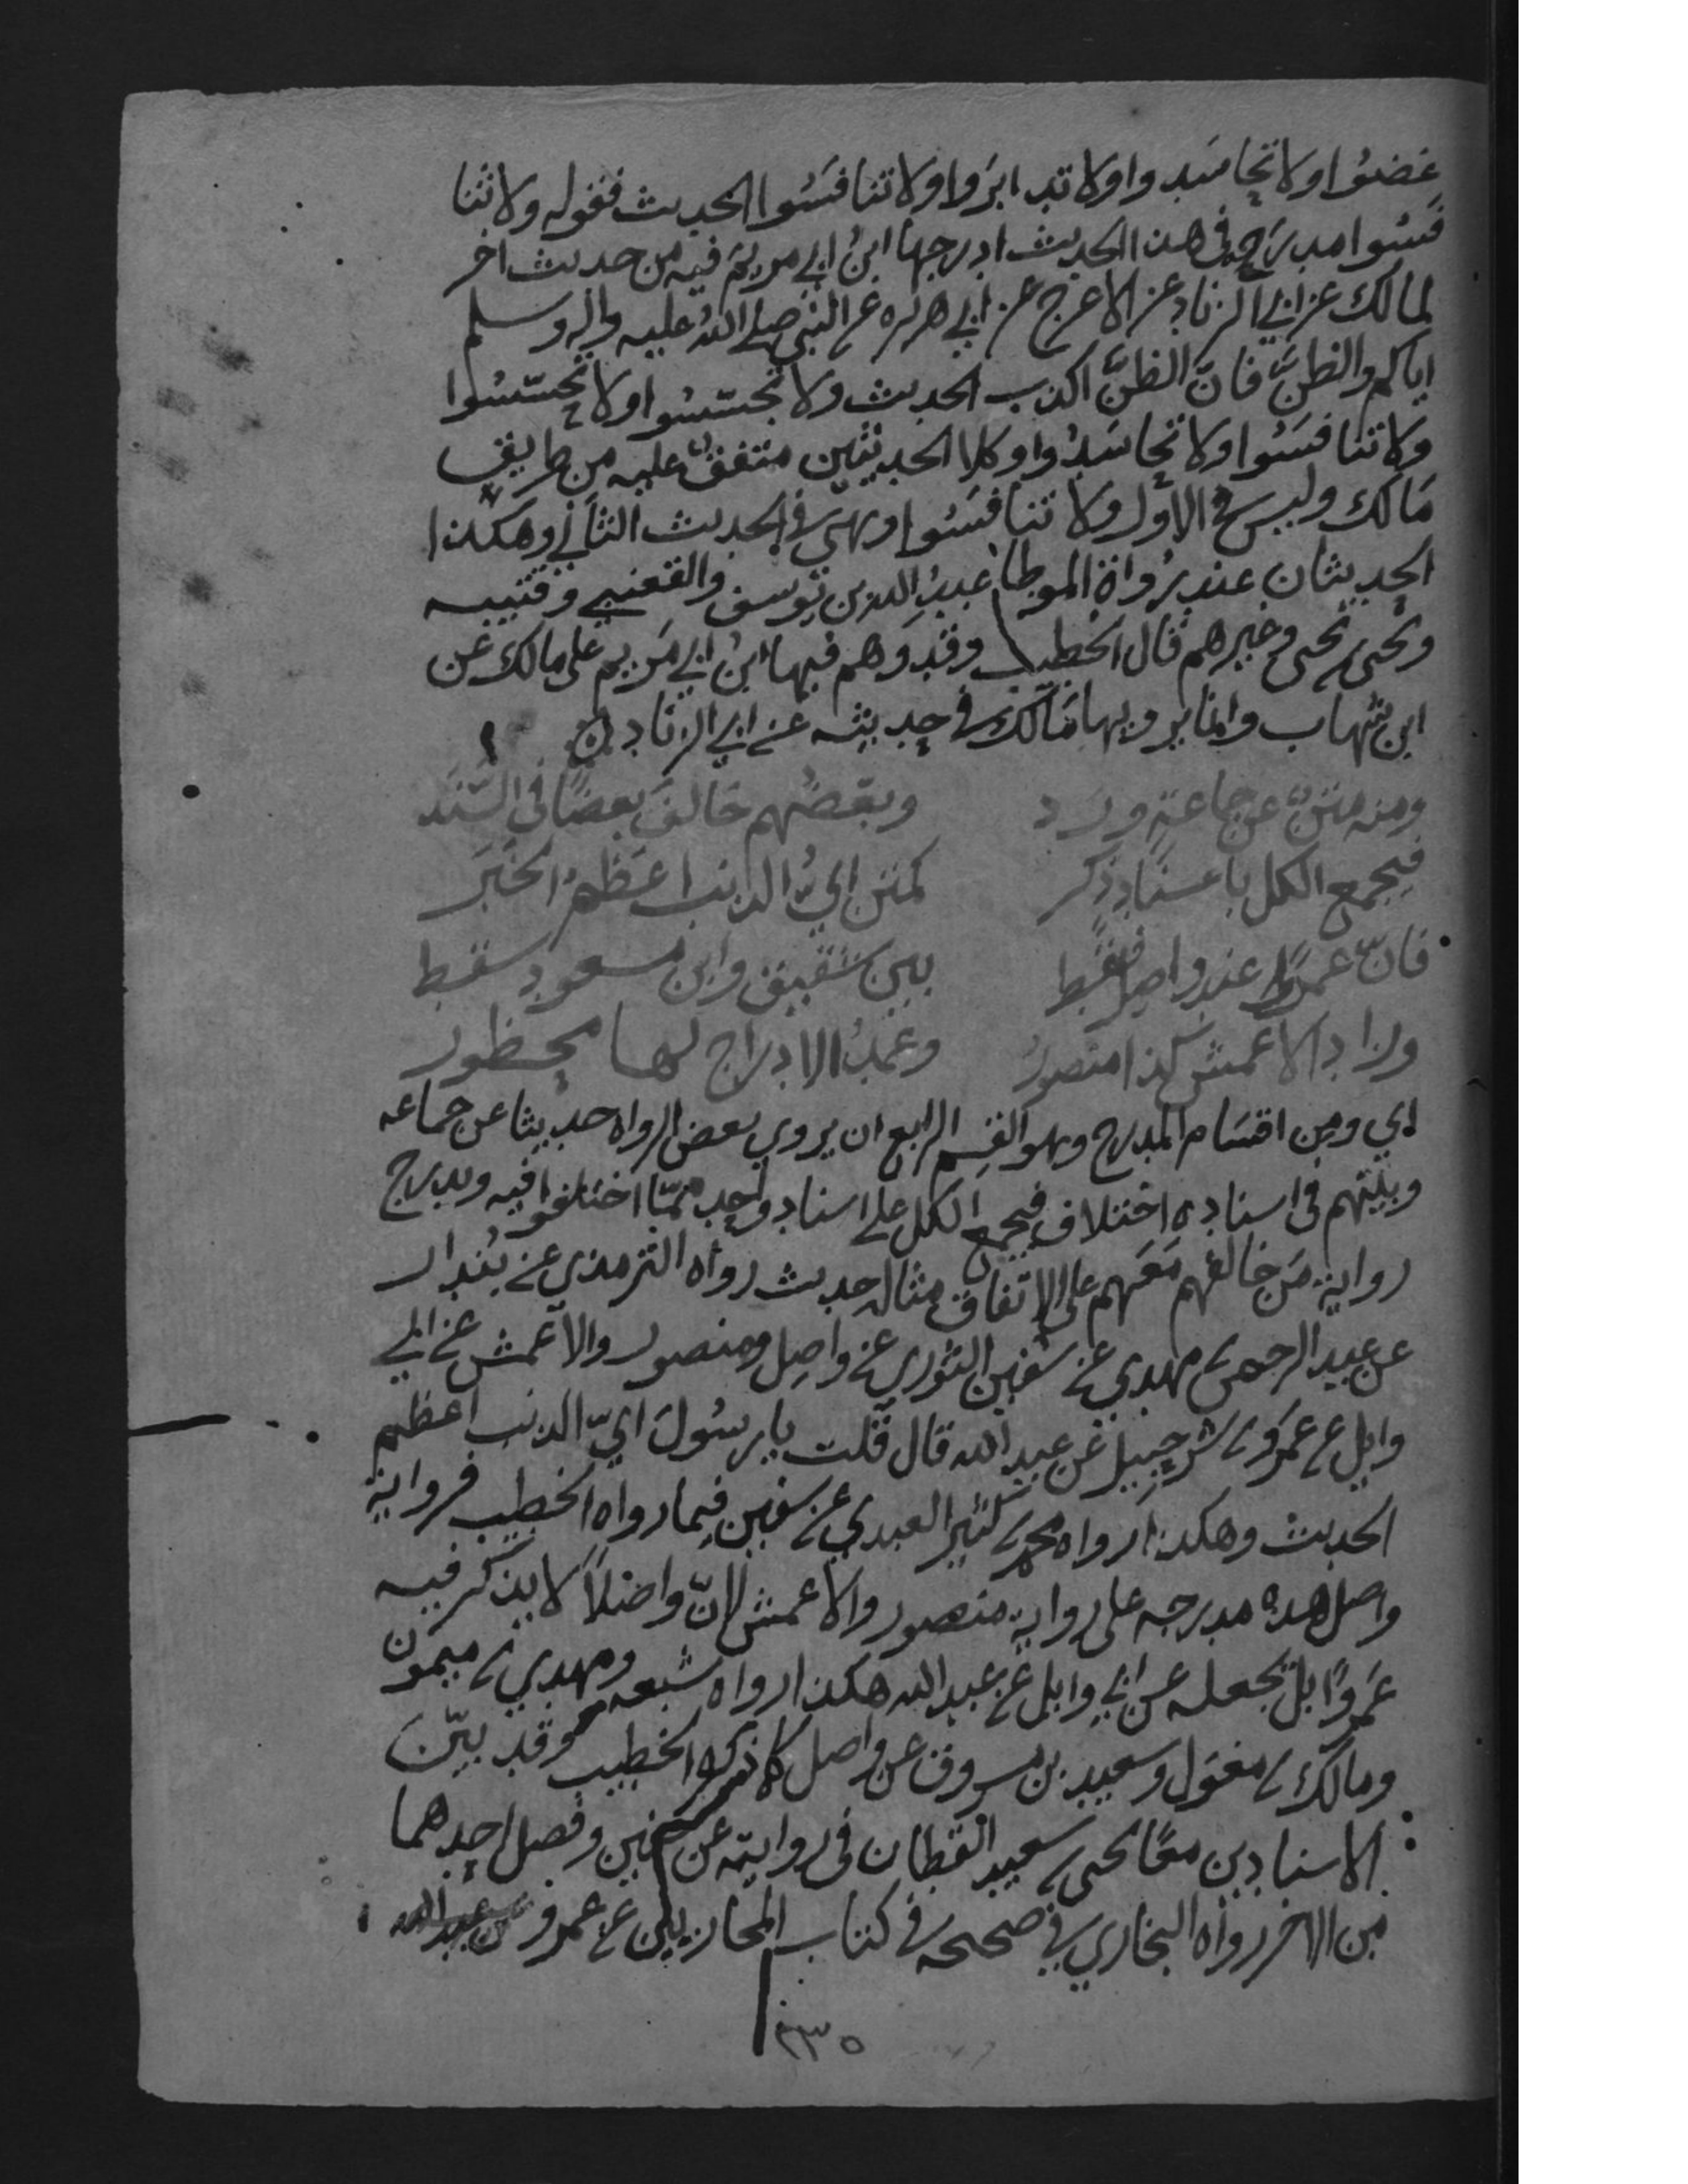 غضوا ولا تحاسدوا ولا تدابروا ولا تنافسوا الحديث فقوله ولا تنا
فسوا مدرج في هذا الحديث ادرجها ابن ابي مريم فيه من حديث اخر
لمالك عن ابي الزناد عن الاعرج عن ابي هريره عن النبي صلى الله عليه واله وسلم
اياكم والظن فان الظن اكذب الحديث ولا تجسسوا ولا تحسسوا
ولا تنافسوا ولا تحاسدوا وكلا الحديثين متفق عليه من طريق
مالك وليس في الاول ولا تنافسوا وهي في الحديث الثاني وهكذا
الحديثان عند رواة الموطا عبد الله بن يوسف والقعنبي وقتيبه
ويحيى بن يحيى وغيرهم قال الخطيب وقد وهم فيها ابن ابي مريم على مالك عن
ابن شهاب وانما يرويها مالك في حديثه عن ابي الزناد
ومنه متن عن جماعة ورد وبعضهم خالف بعضا في السند
فيجمع الكل باسناد ذكر كمتن اي الذنب اعظم الخبر
فان عمرا عند واصل فقط بين شقيق وابن مسعود سقط
وزاد الاعمش كذا منصور وعمد الادراج لها محظور
اي ومن اقسام المدرج وهو القسم الرابع ان يروي بعض الرواه حديثا عن جماعه
وبينهم في اسناده اختلاف فيجمع الكل على اسناد واحد مما اختلفوا فيه ويدرج
رواية من خالفهم معهم على الاتفاق مثاله حديث رواه الترمذي عن بندار
عن عبد الرحمن بن مهدي عن سفين الثوري عن واصل ومنصور والاعمش عن ابي
وايل عن عمرو بن شرحبيل عن عبد الله قال قلت يا رسول اي الذنب اعظم
الحديث وهكذا رواه محمد بن كثير العبدي عن سفين فيما رواه الخطيب فرواية
واصل هذه مدرجه على رواية منصور والاعمش لان واصلا لا يذكر فيه
عمروا بل يجعله عن ابي وايل عن عبد الله هكذا رواه شعبه ومهدي بن ميمون
ومالك بن مغول وسعيد بن مسروق عن واصل كما ذكره الخطيب وقد بين
الاسنادين معا يحيى بن سعيد القطان في روايته عن سفين وفصل احدهما
من الاخر رواه البخاري في صحيحه في كتاب المحاربين عن عمرو بن